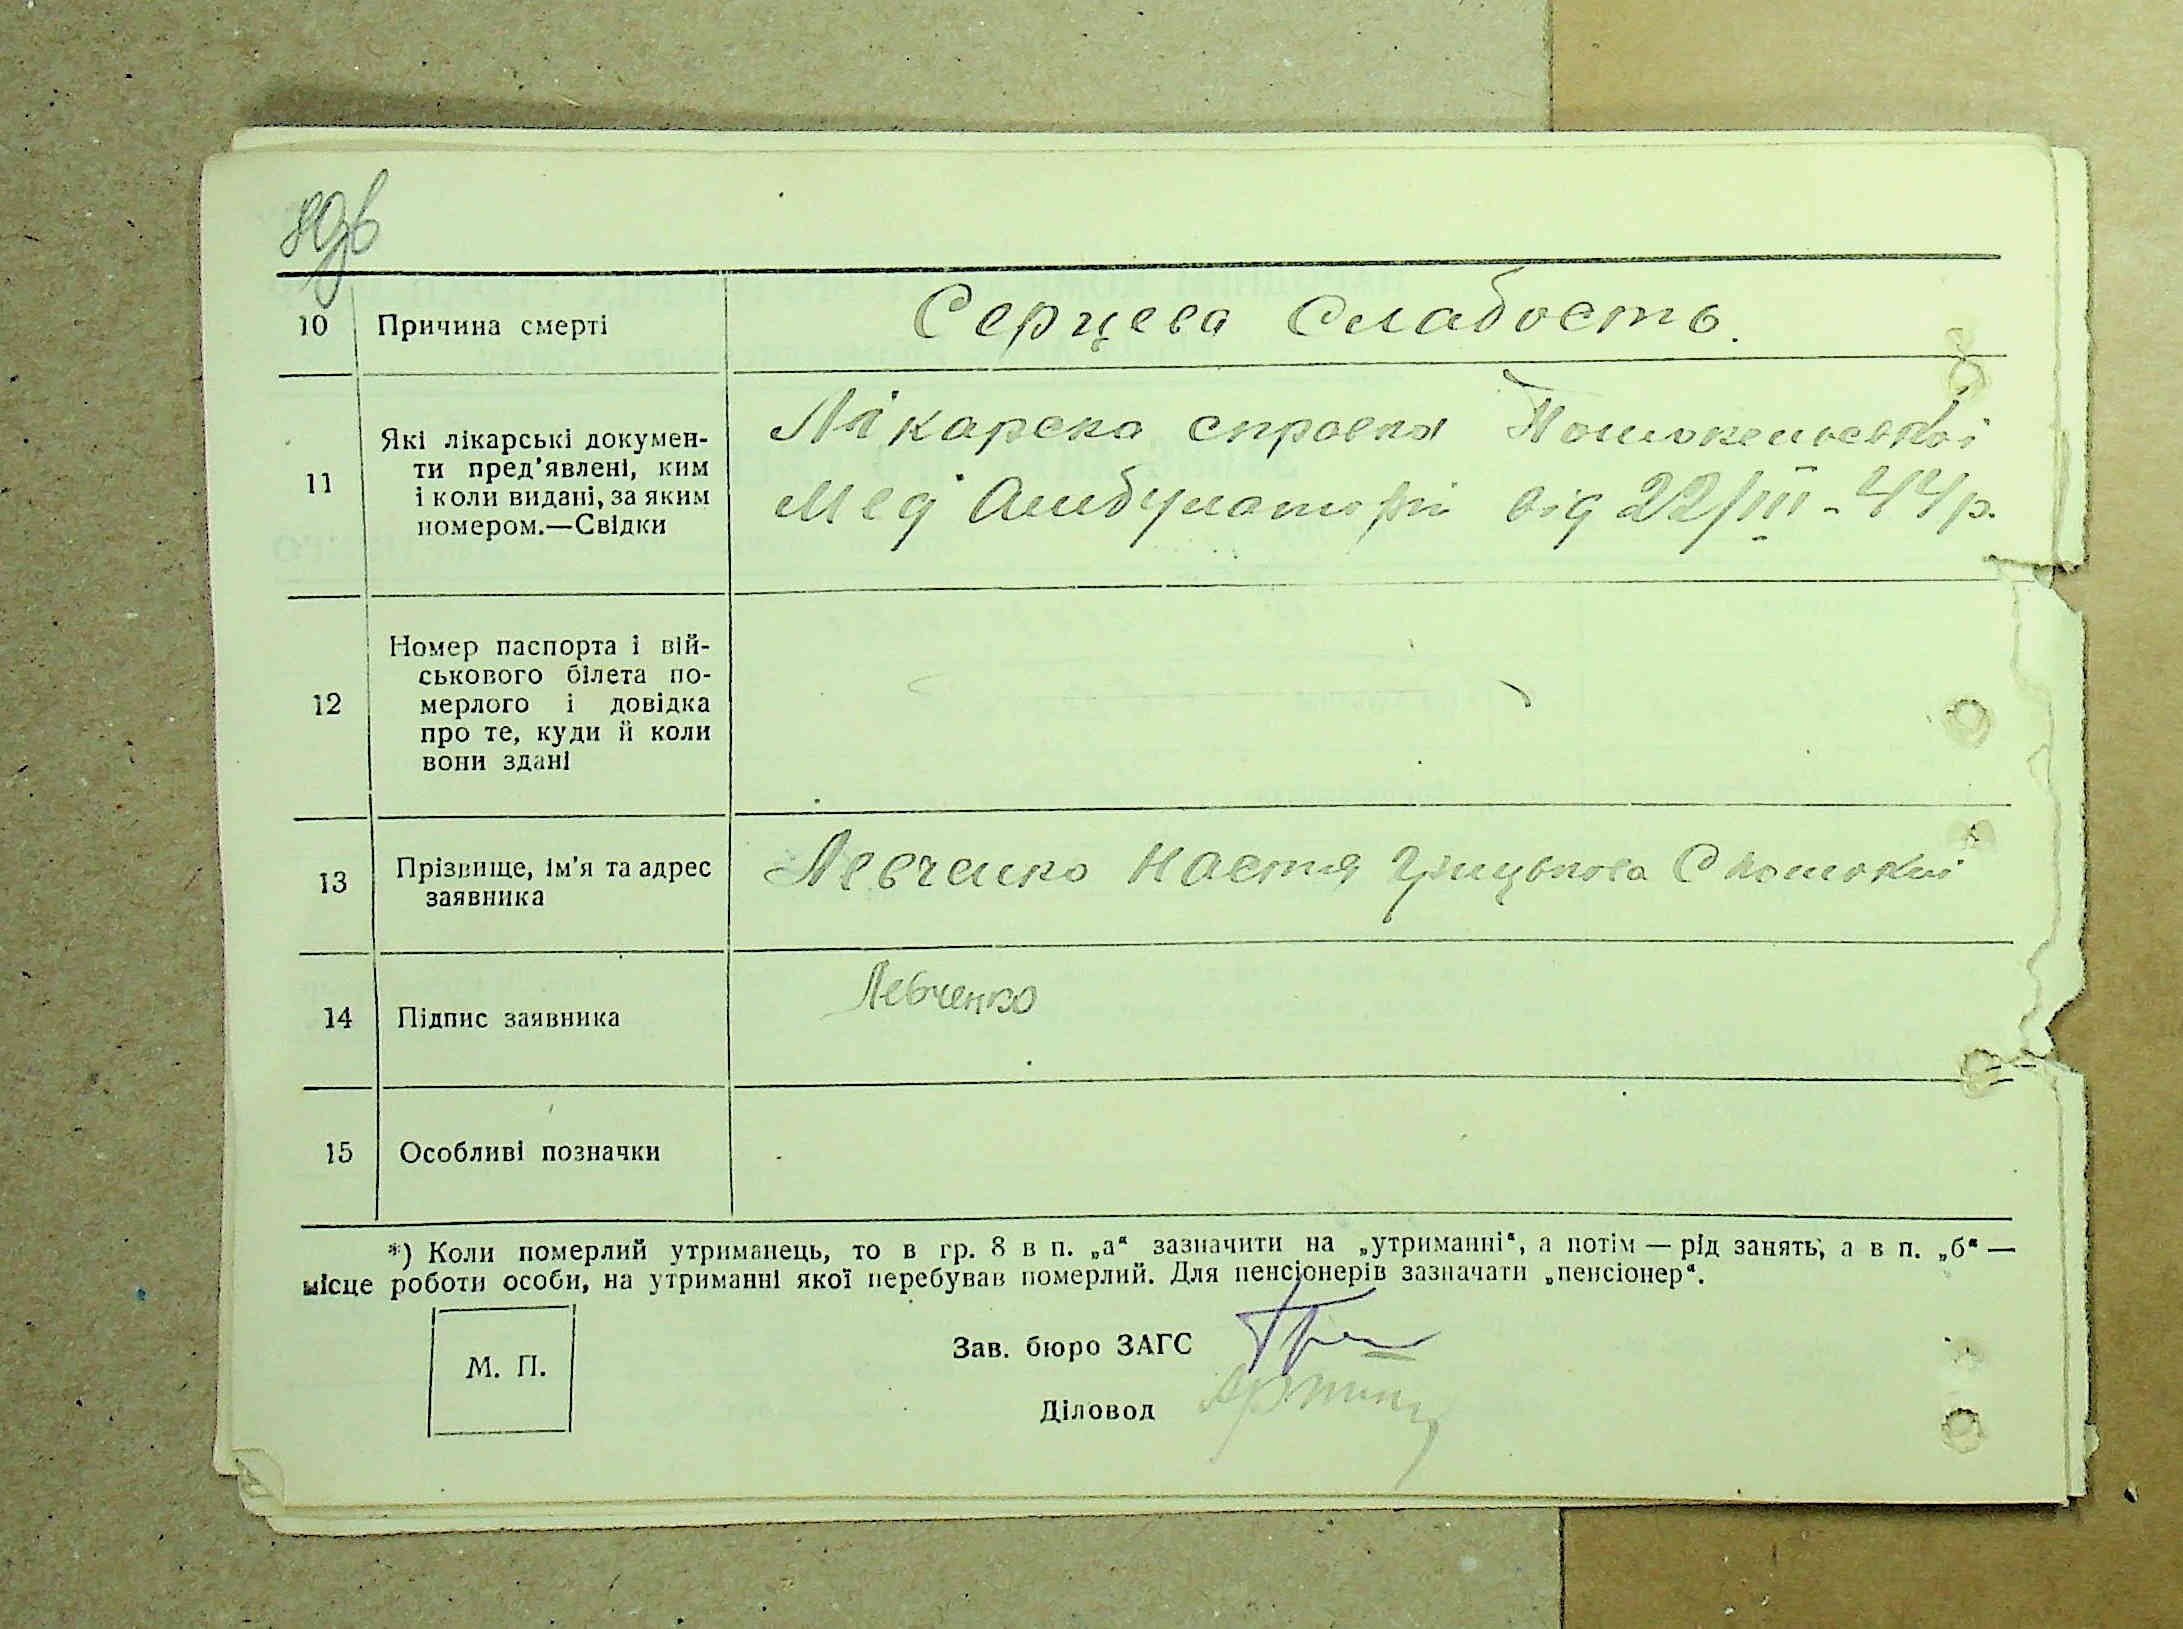 80зв
10 Причина смерті Серцева Слабость.
11 Які лікарські докумен-
ти пред'явлені, ким
і коли видані, за яким
номером.—Свідки
Лікарска справка
Мед Амбулаторії від 22/III-44р.
12 Номер паспорта і вій-
ськового білета по-
мерлого і довідка
про те, куди й коли
вони здані
13 Прізвище, ім'я та адрес
заявника
Левченко Настя Грицькова
14 Підпис заявника Левченко
15 Особливі позначки
*) Коли померлий утриманець, то в гр. 8 в п. „а“ зазначити на „утриманні“, а потім — рід занять, а в п. „б“ —
місце роботи особи, на утриманні якої перебував померлий. Для пенсіонерів зазначати „пенсіонер“.
М. П.
Зав. бюро ЗАГС
Діловод